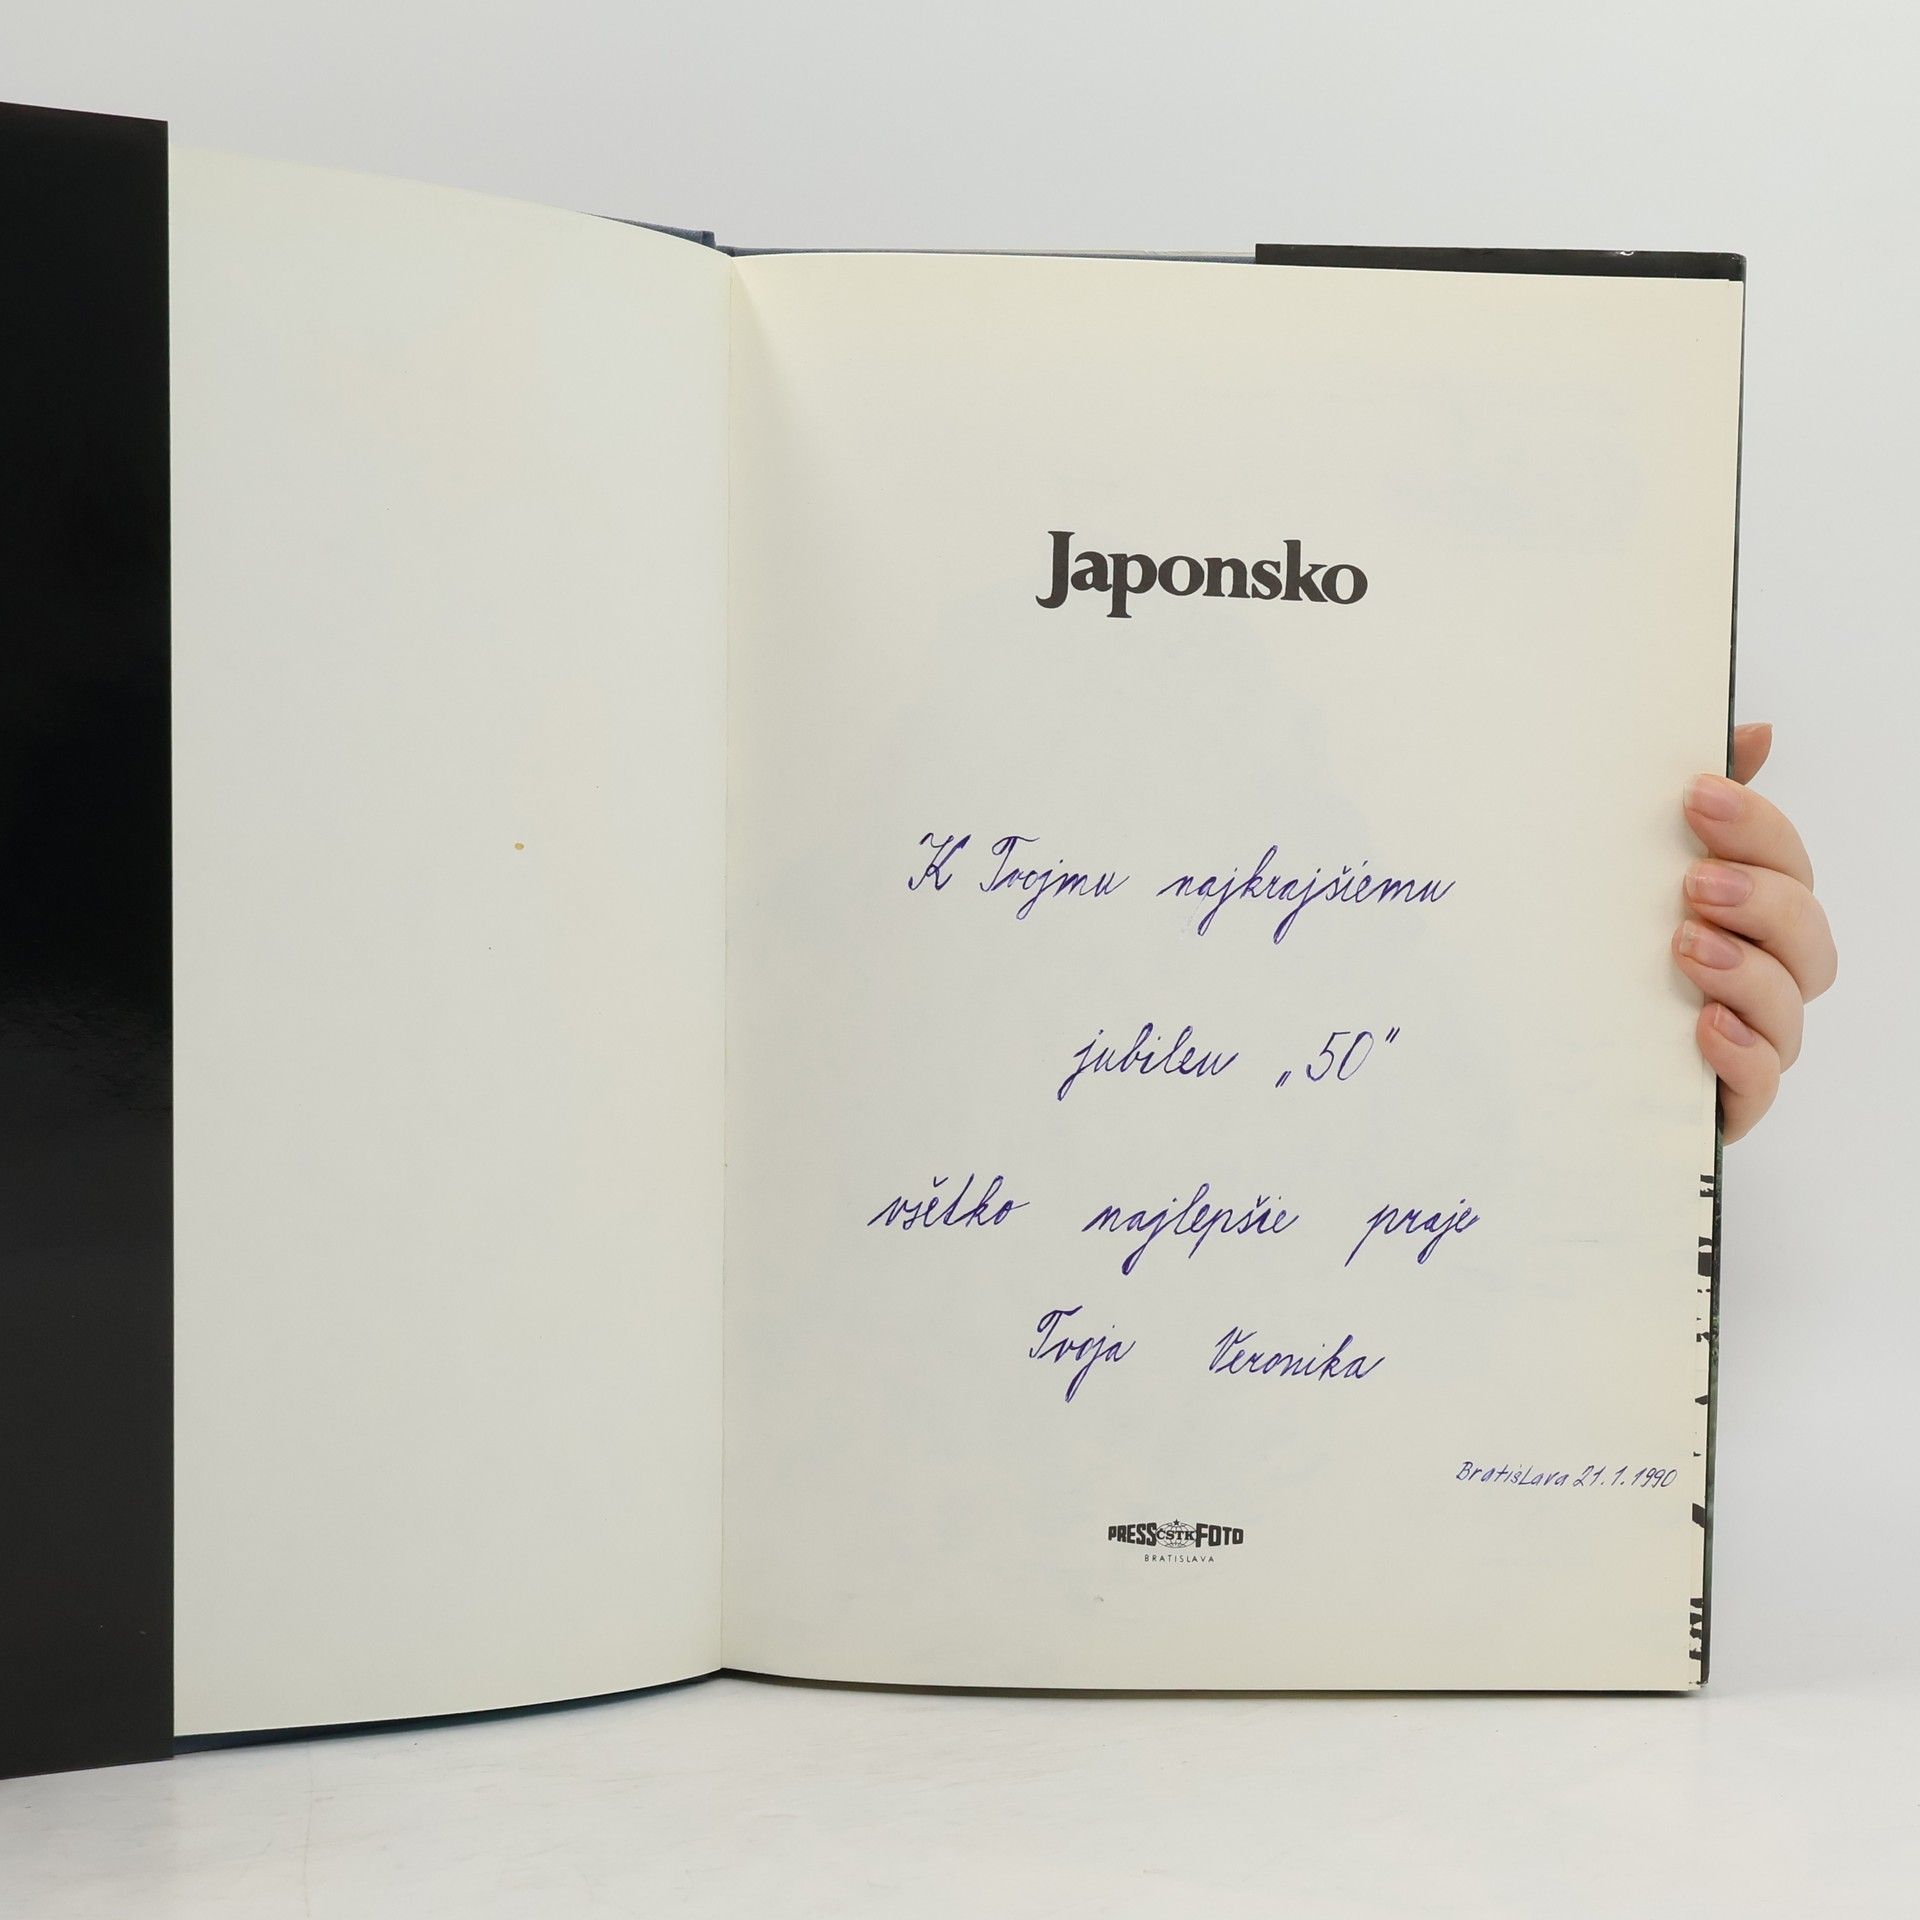 Japonsko
K Tvojmu najkrajšiemu
jubileu „50“
všetko najlepšie praje
Tvoja Veronika
Bratislava 21.1.1990
PRESS ČSTK FOTO
BRATISLAVA